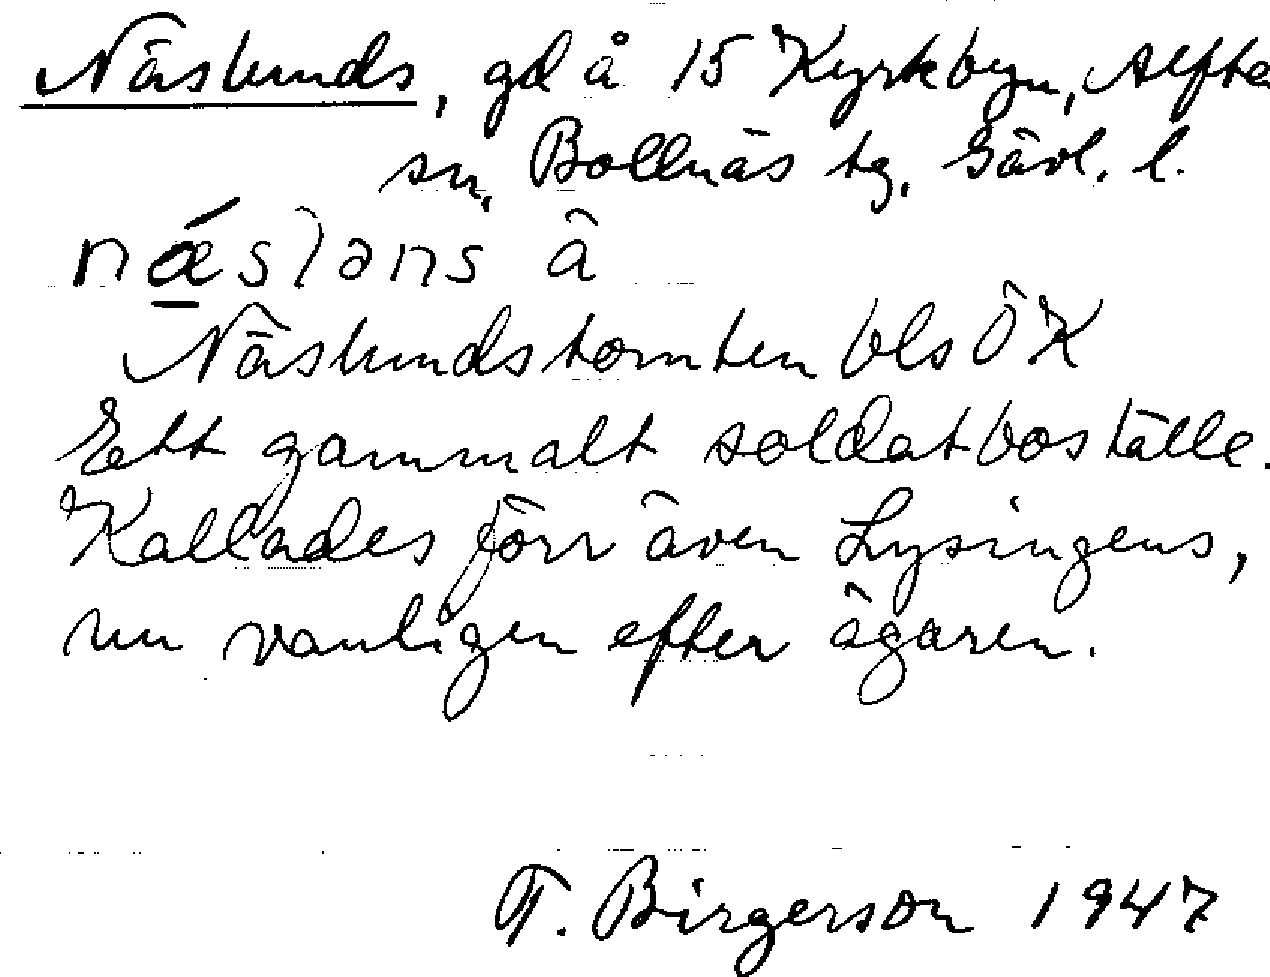 Näslunds, gd å 15 Kyrkbyn, Alfta
sn, Bollnäs tg, Gävl. l.
næ´slans â
Näslundstomten bls ÖK
Ett gammalt soldatboställe.
Kallades förr även Lysingens,
nu vanligen efter ägaren.
T. Birgerson 1947